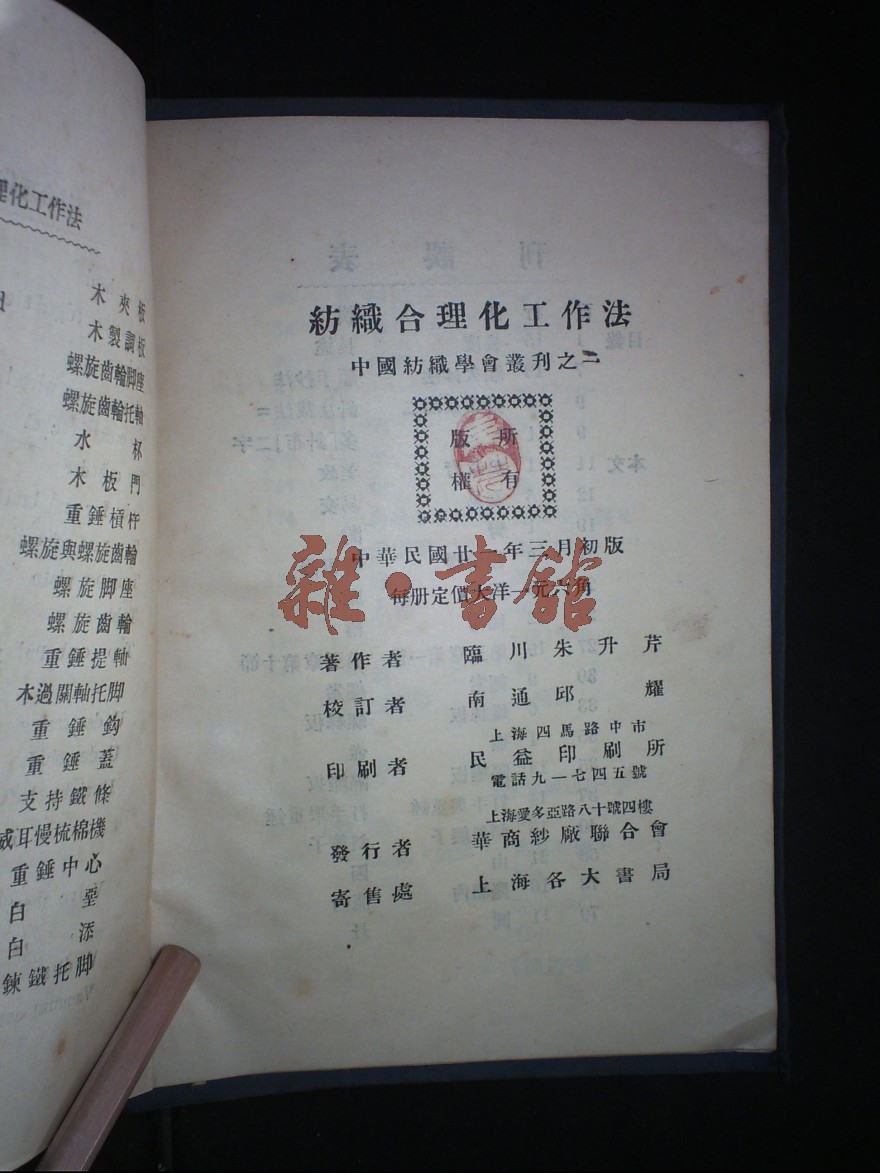 理化工作法
木夾板
木製調板
螺旋齒輪脚座
螺旋齒輪托軸
水杯
木板門
重錘槓杆
螺旋與螺旋齒輪
螺旋脚座
螺旋齒輪
重錘提軸
木過關軸托脚
重錘鈎
重錘蓋
支持鐵條
威耳慢梳棉機
重錘中心
白堊
白添
鍊鐵托脚
刊誤表
紡織合理化工作法
中國紡織學會叢刊之二
版所
權有
中華民國廿一年三月初版
每册定價大洋一元六角
雜·書館
著作者 臨川朱升芹
校訂者 南通邱耀
上海四馬路中市
印刷者 民益印刷所
電話九一七四五號
上海愛多亞路八十號四樓
發行者 華商紗廠聯合會
寄售處 上海各大書局